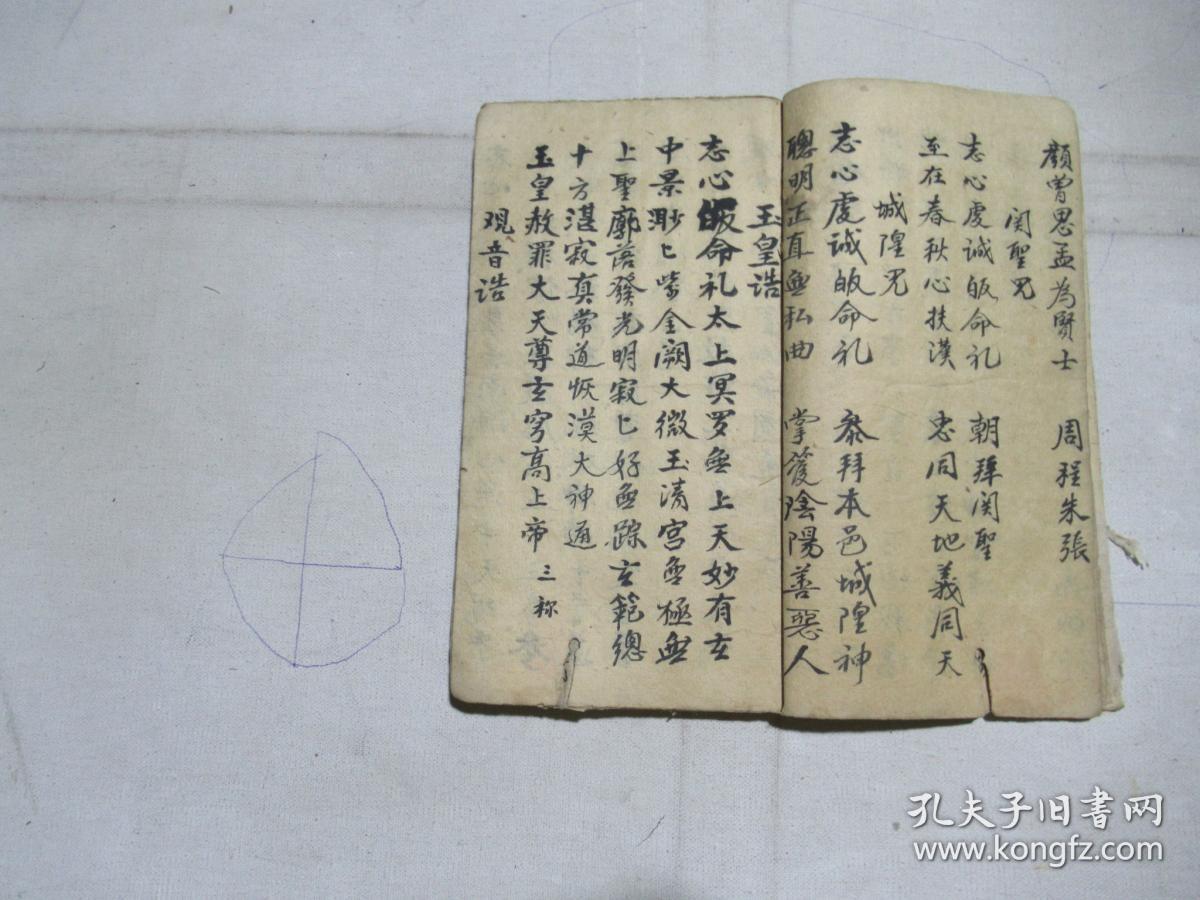 顔曾思孟為賢士 周程朱張
関聖咒
志心虔誠皈命礼 朝拜関聖
至在春秋心扶漢 忠同天地義同天
城隍咒
志心虔誠皈命礼 叅拜本邑城隍神
聰明正直無私曲 掌管陰陽善惡人
玉皇誥
志心皈命礼太上冥罗無上天妙有玄
中景渺匕紫金闕大微玉清宫無極無
上聖廓落發光明寂匕好無踪玄範總
十方湛寂真常道恢漠大神通
玉皇赦罪大天尊玄穹高上帝 三称
观音誥
孔夫子旧书网
www.kongfz.com